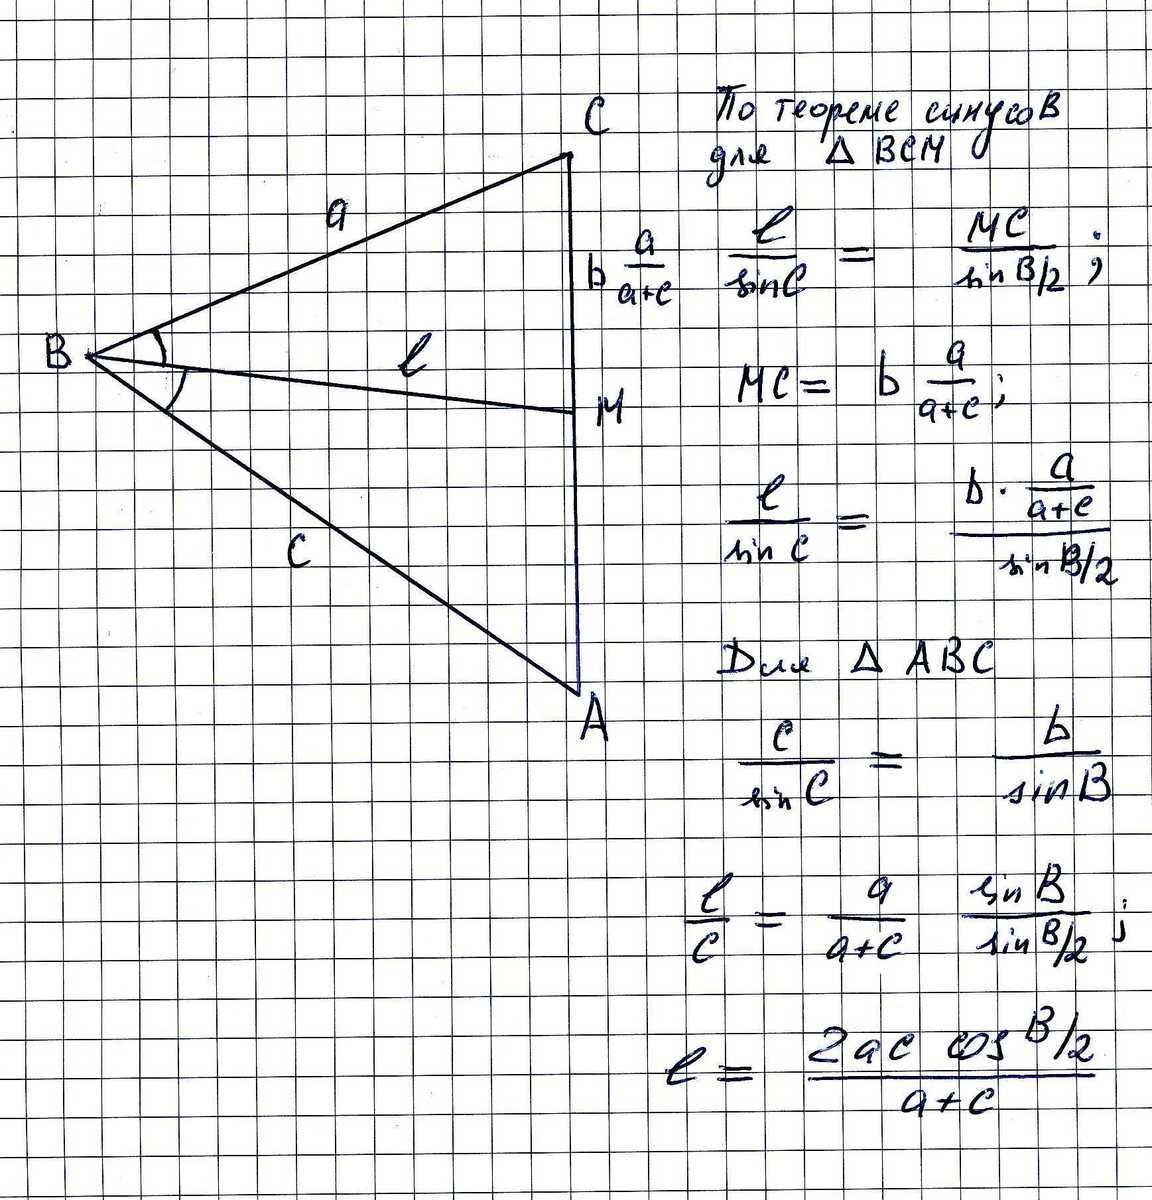 C
a
b a/(a+c)
B
l
M
c
A
По теореме синусов
для Δ BCM
l/sinC = MC/sin B/2 ;
MC = b a/(a+c) ;
l/sin C = (b · a/(a+c))/sin B/2
Для Δ ABC
c/sin C = b/sin B
l/c = a/(a+c) sin B/sin B/2 ;
l = (2ac cos B/2)/(a+c)